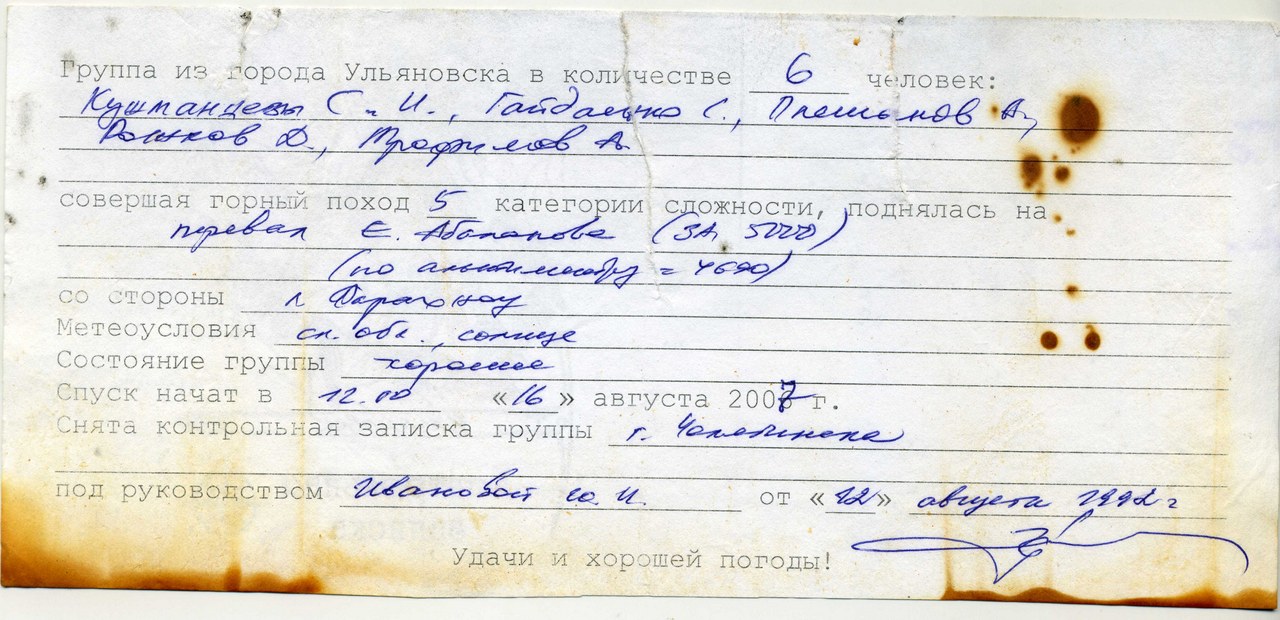 Группа из города Ульяновска в количестве 6 человек:
Кушманцевы С. и И., Гайдаенко С., Плешанов А.,
Рольков Д., Трофимов А.
совершая горный поход 5 категории сложности, поднялась на
перевал Е. Абалакова (3А, 5000)
(по альтиметру = 4690)
со стороны л.
Метеоусловия сл. обл., солнце
Состояние группы хорошее
Спуск начат в 12.00 «16» августа 2007 г.
Снята контрольная записка группы г. Челябинска
под руководством Ивановой Ю. И. от «12» августа 1992 г
Удачи и хорошей погоды!